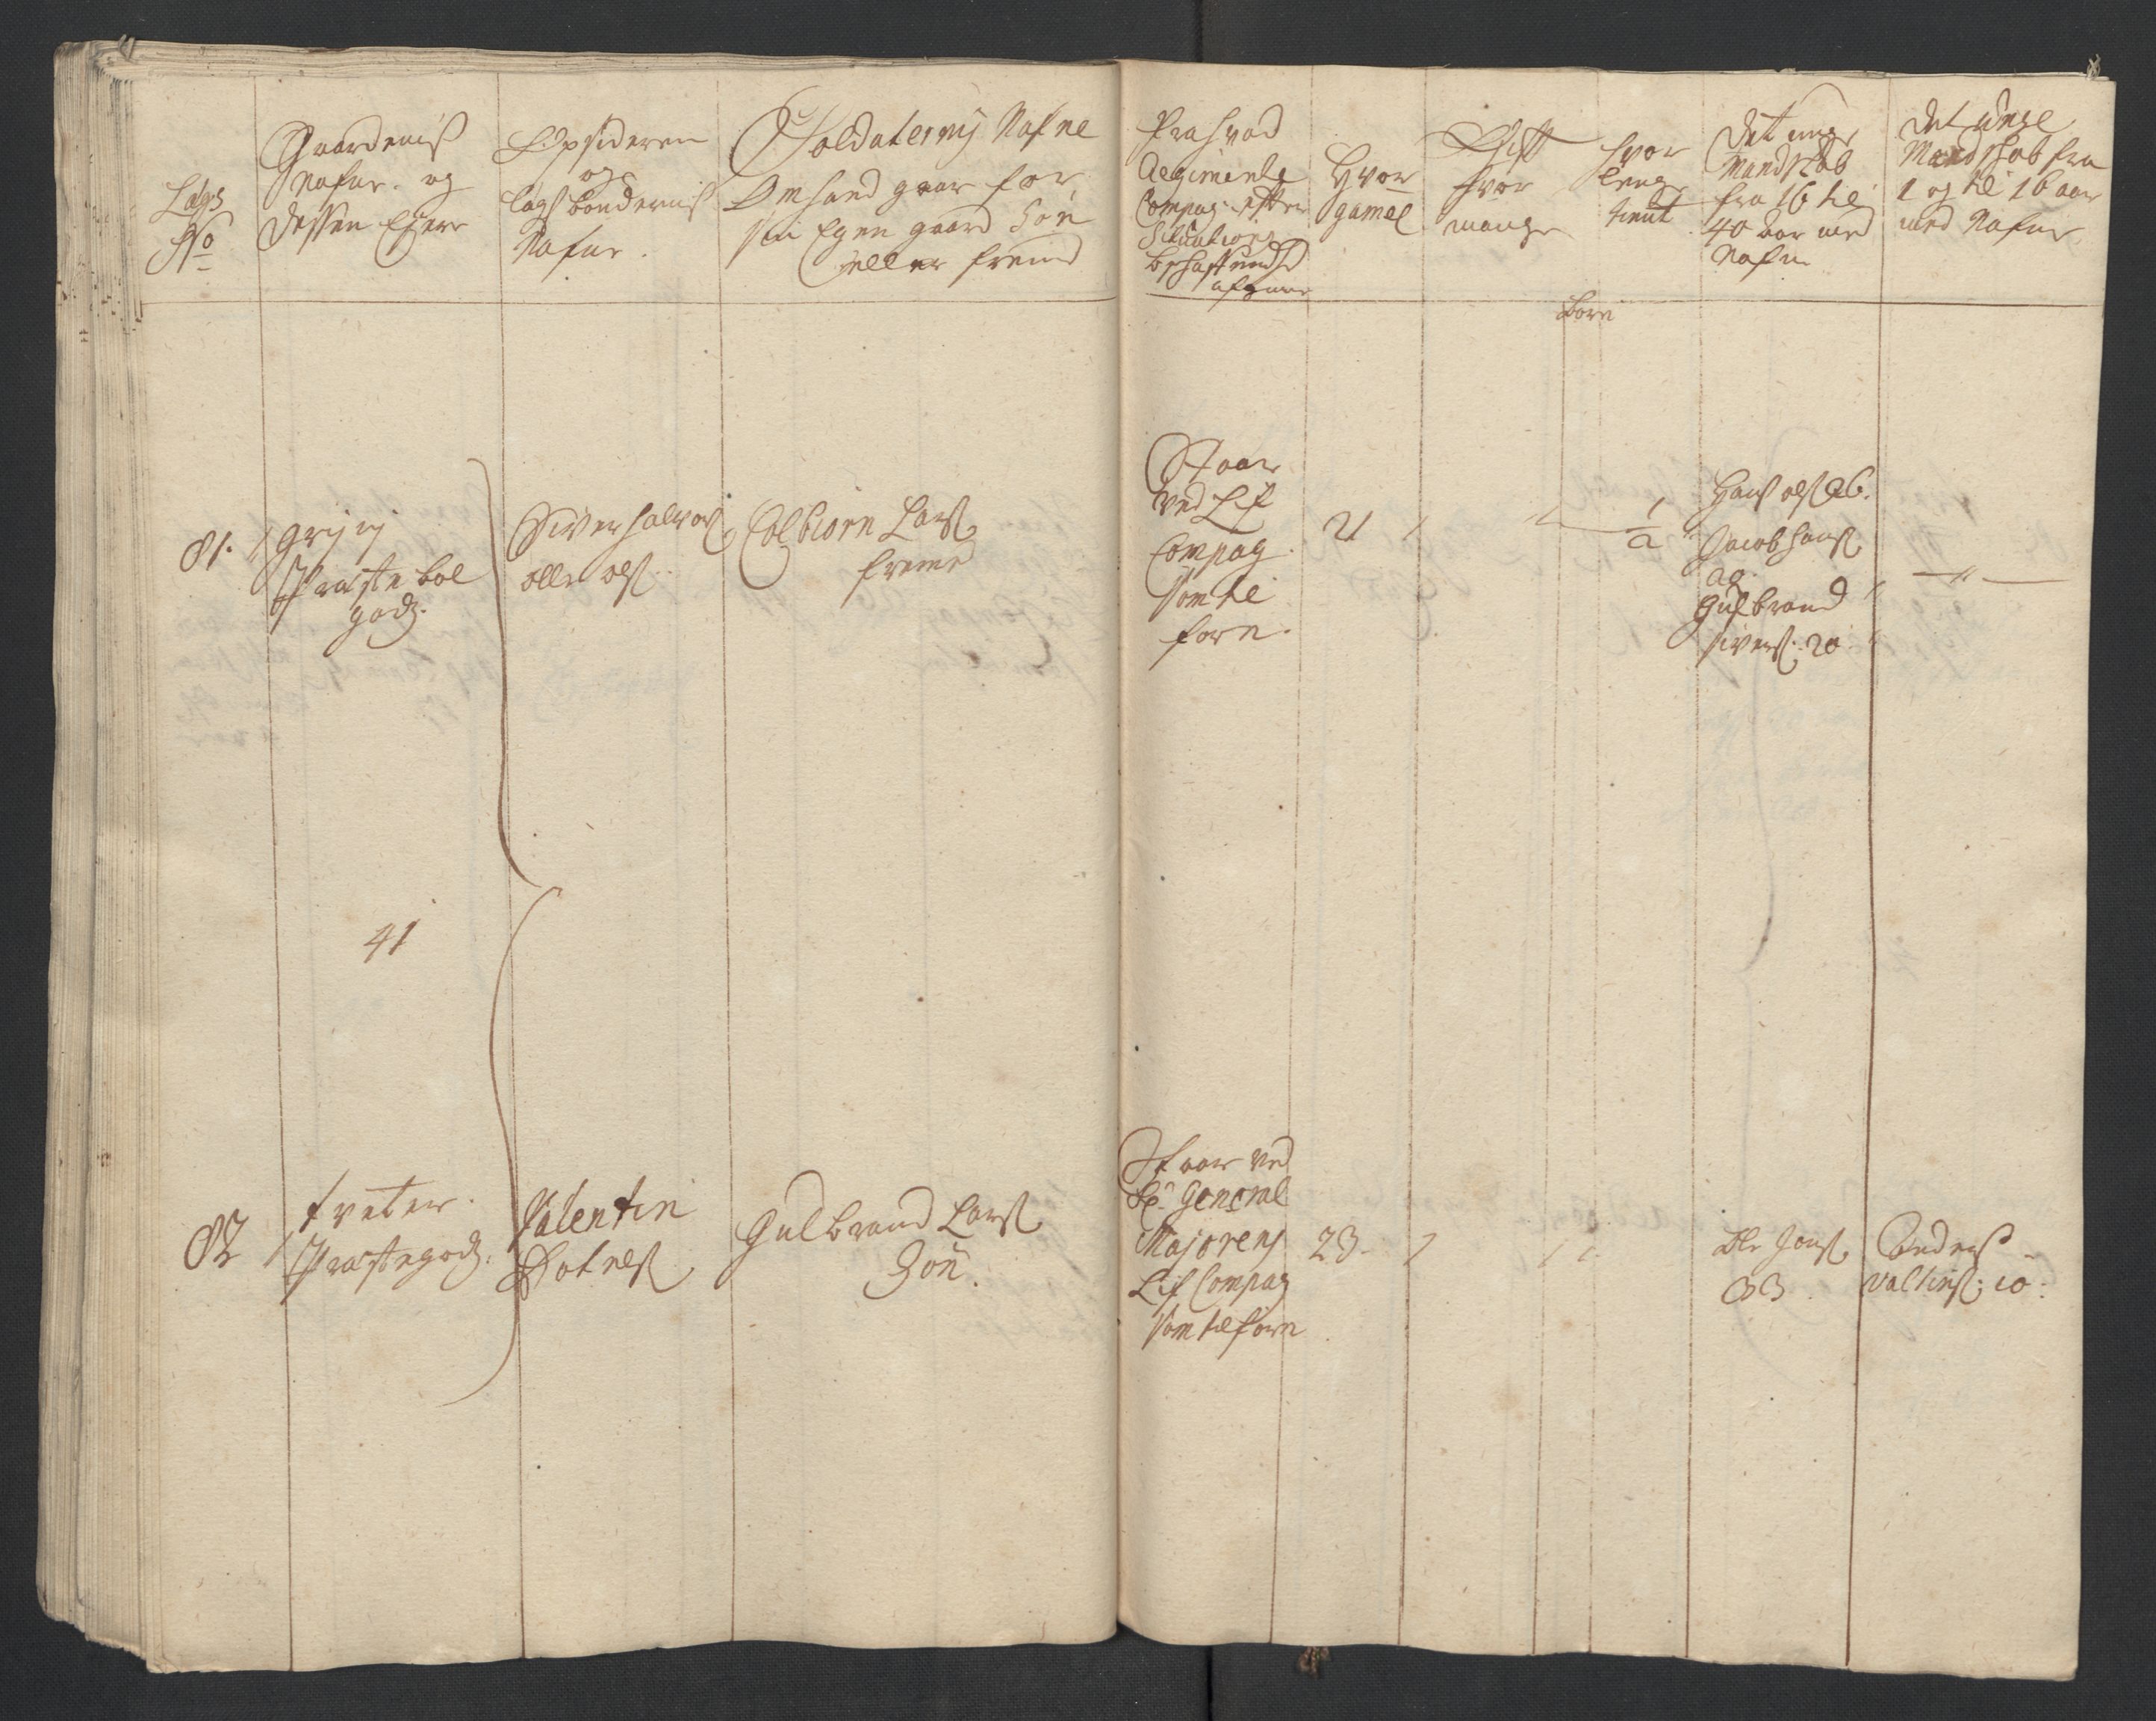 Lags
No
Gaardenis
Nafne. og
dessen Ejere
Opsideren
og
lags bondernis
Nafne.
Soldaternis Nafne
Om hand gaar for
sin Egen gaard Søn
eller fremd
Fra hvad
Regimente
Compag: efter
Situations
beschaffendh
afgaar
Hvor
gamel
Gift
hvor
mange
Børn
hvor
leng
tient
Det unge
Mandskab
fra 16 til
40 aar med
Nafn
Det unge
Mandskab fra
1 og til 16 aar
med Nafne
81.
Præstebol
godz.
Siver halvors
olle ols
Colbiørn Lars
fremd
Staar
ved Lif
Compag.
som til
forn.
21
1/2
Hans ols 26.
Jacob hans
20
Gulbrand
sivers. 20
41
82
tveter.
Præstegodz.
Valentin
Gulbrand Lars
Søn.
Staar ved
General
Majorens
Lif Compag
som tilforn
23.
Ole Jons
33
Anders
Valtins: 10.